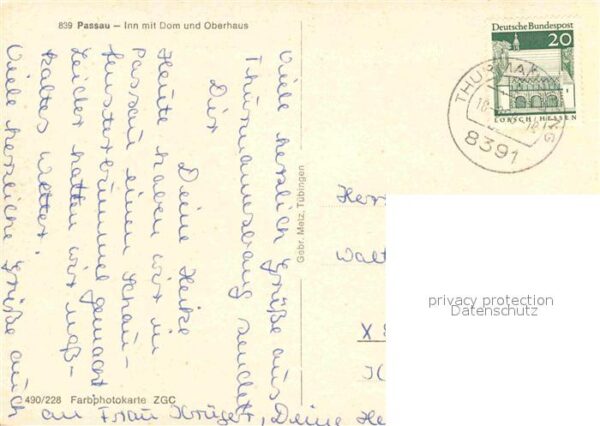 839 Passau – Inn mit Dom und Oberhaus
Deutsche Bundespost
20
LORSCH / HESSEN
THURMANSBANG
8391
Viele herzlich Grüße aus
Thurmannsbang sendet
Dir
Deine Heike
Heute haben wir in
Passau einen Schau-
fensterbummel gemacht
Leider hatten wir naß-
kaltes Wetter.
Viele herzliche Grüße auch
an Frau Krüger, Deine He
Gebr. Metz, Tübingen
Herr
Walt
X
privacy protection
Datenschutz
490/228 Farbphotokarte ZGC